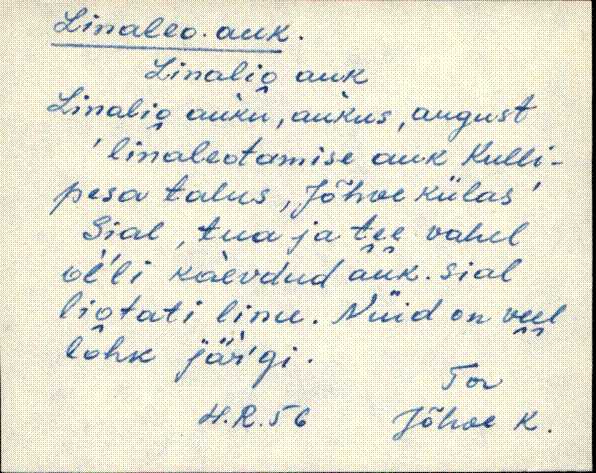 Linaleo. auk.
Linalio̭ auk
Linalio̭ auku, aukus, august
'linaleotamise auk Kulli-
pesa talus, Jõhve külas'
Sial, tua ja te̮e̮ vahel
ol'li kàevdud auk. Sial
lio̭tati linu. Nüid on ve̮e̮l
lohk jär'gi.
Tor
H.R.56 Jõhve K.